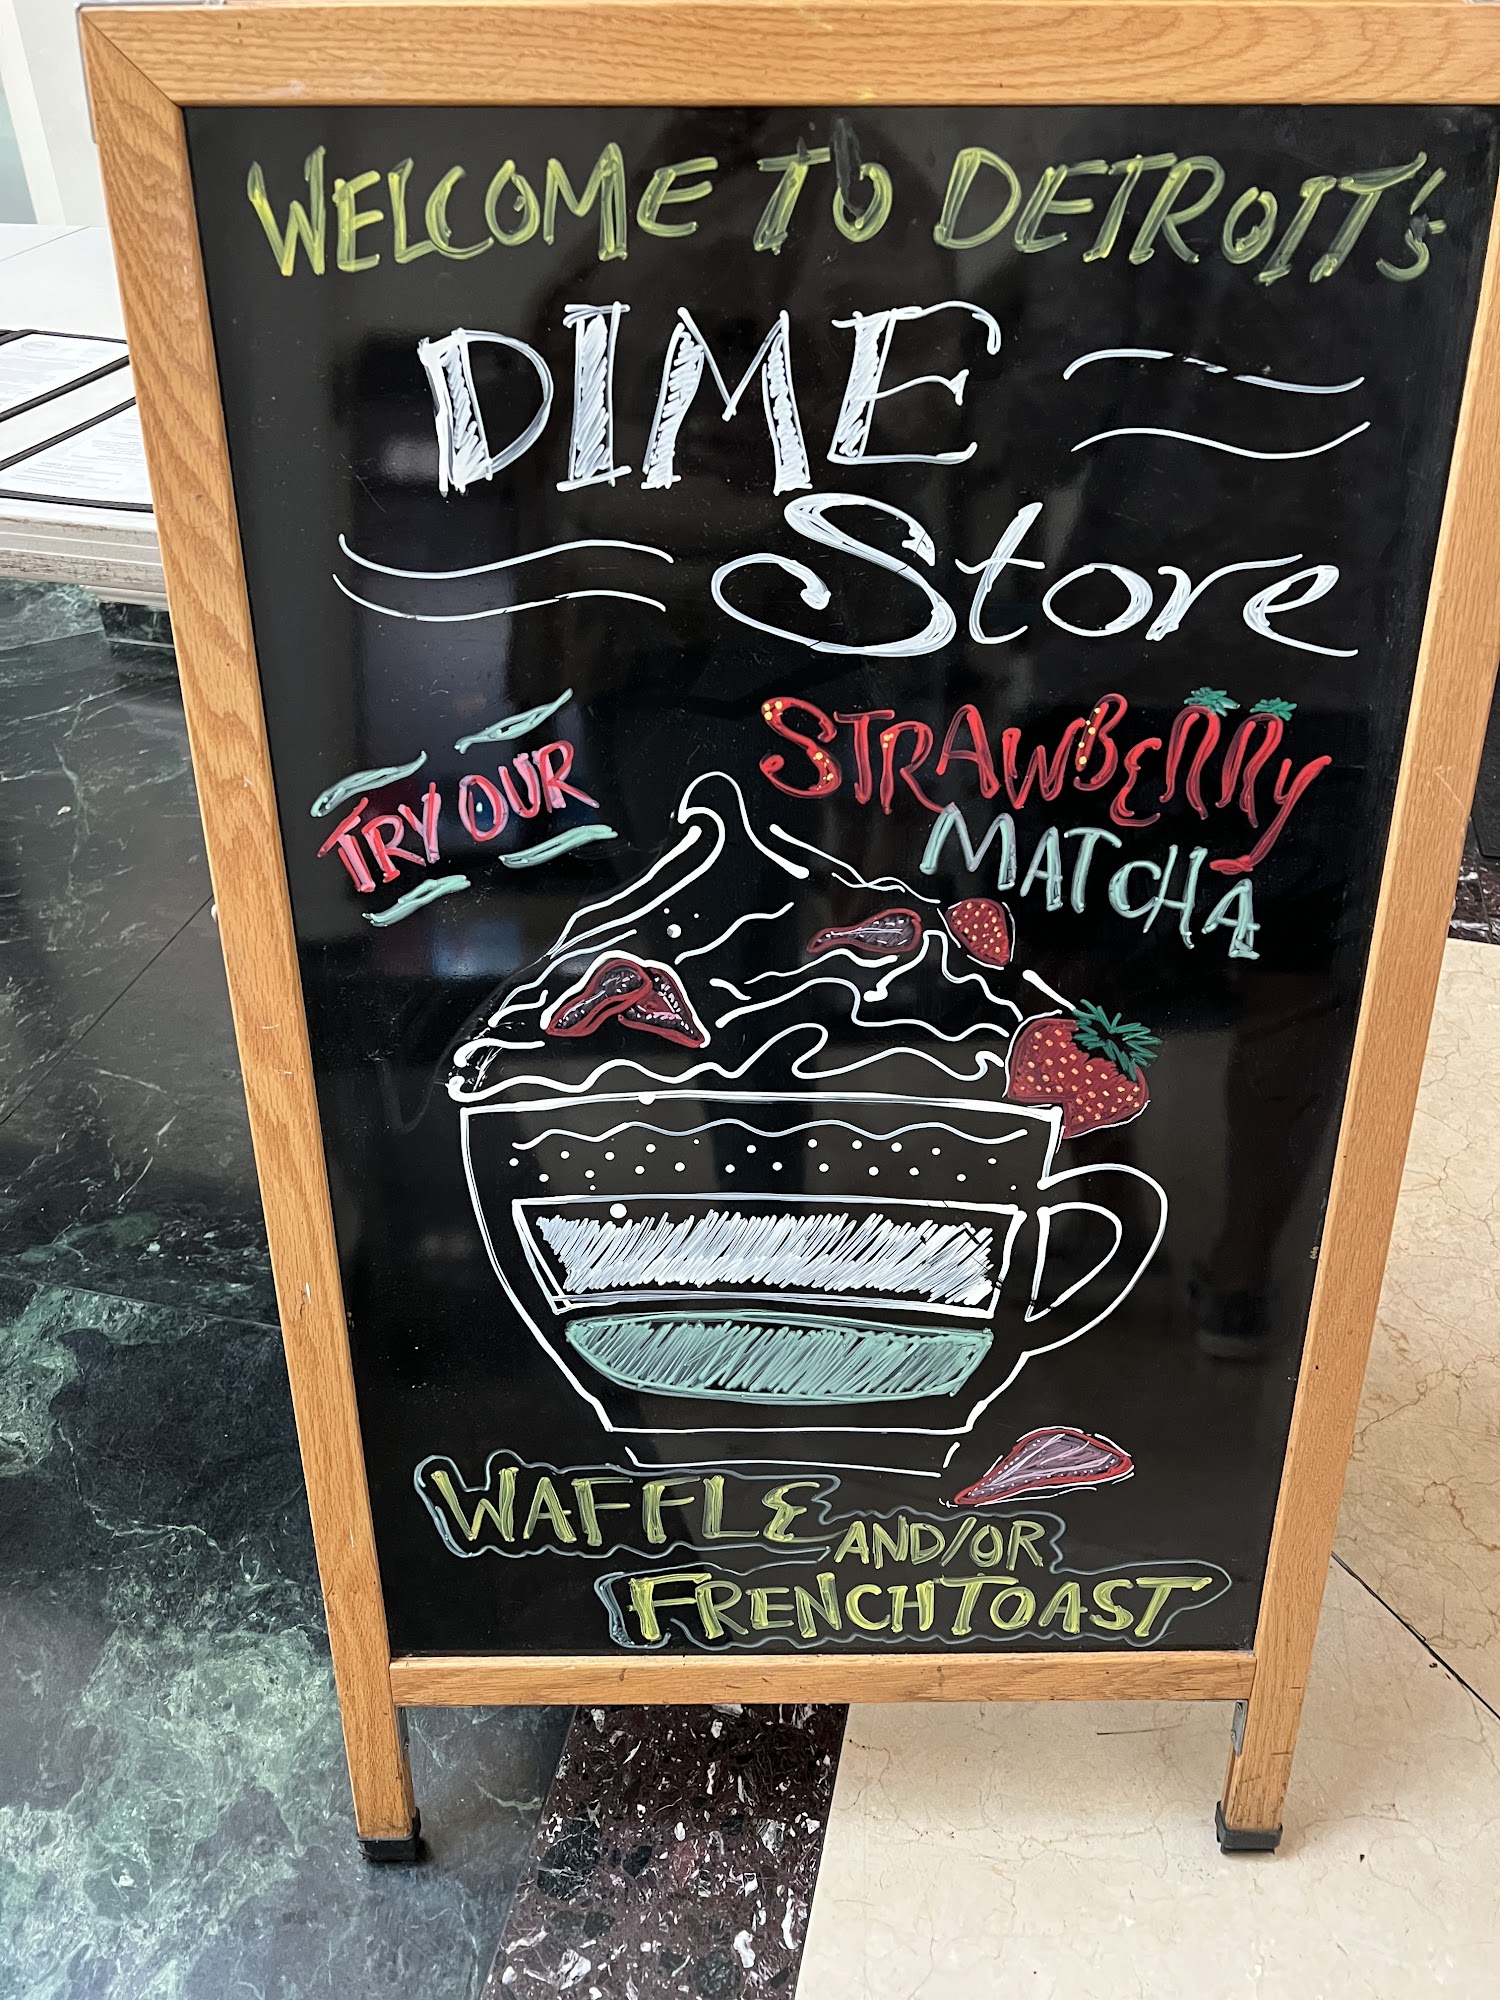 WELCOME TO DETROIT's
DIME
Store
TRY OUR
STRAWBERRY
MATCHA
WAFFLE AND/OR
FRENCH TOAST